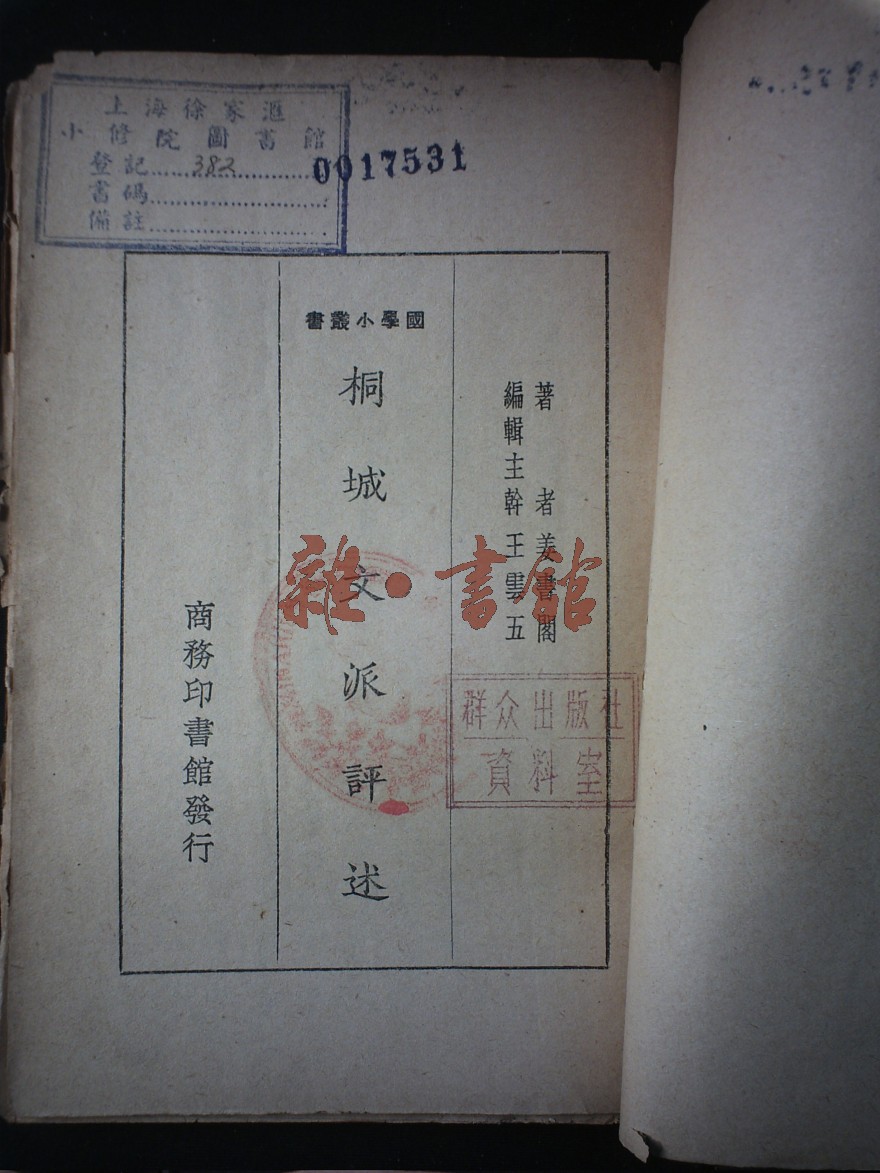 上海徐家滙
小修院圖書館
登記 382
書碼
備註
0017531
著者姜書閣
編輯主幹王雲五
國學小叢書
桐城文派評述
商務印書館發行
雜·書館
群众出版社
資料室